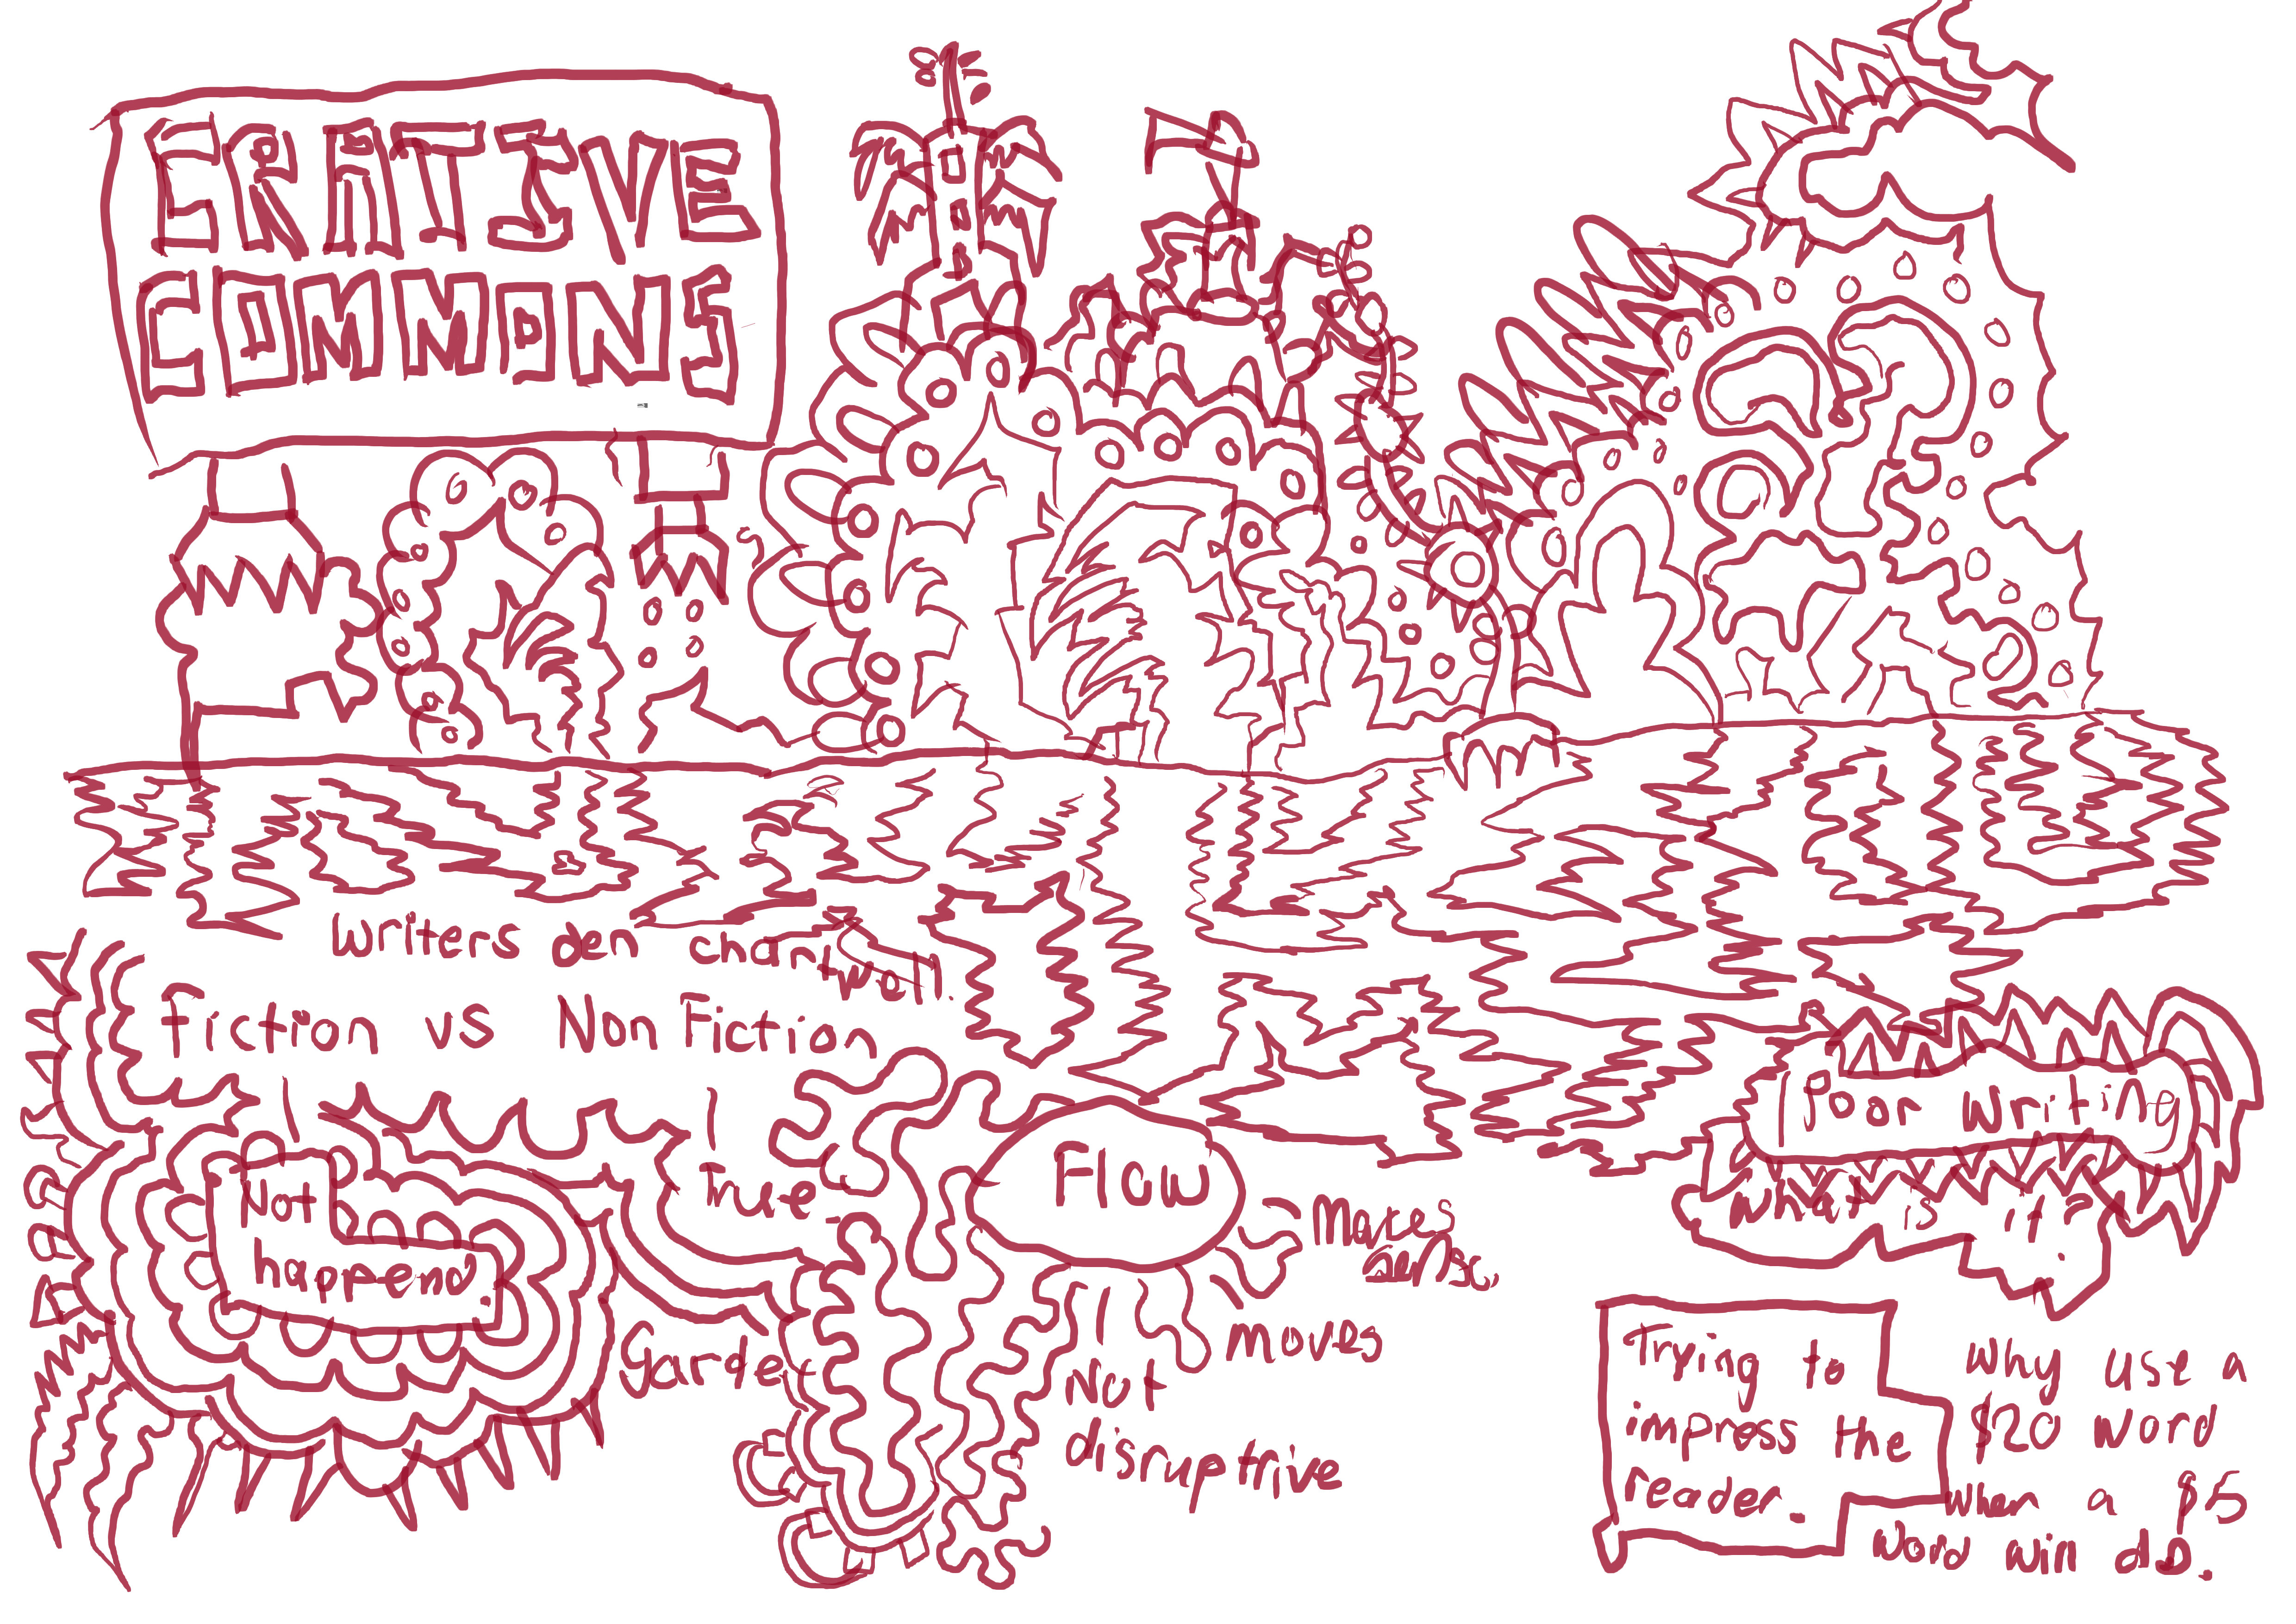 CREATIVE
COMMONS
Writers den chartwell.
Fiction vs Non Fiction
Not
happend.
True
Flow
Makes
sense.
moves
Not
disruptrive
Poor Writing
What is it?
Trying to
impress the
reader.
Why use a
$20 word
when a $5
word will do.